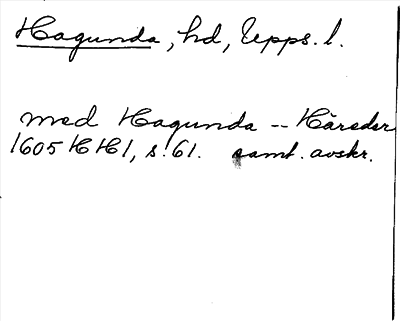 Hagunda, hd, Upps. l.
med Hagunda -- Häreder
1605 HH1, s. 61. samt. avskr.